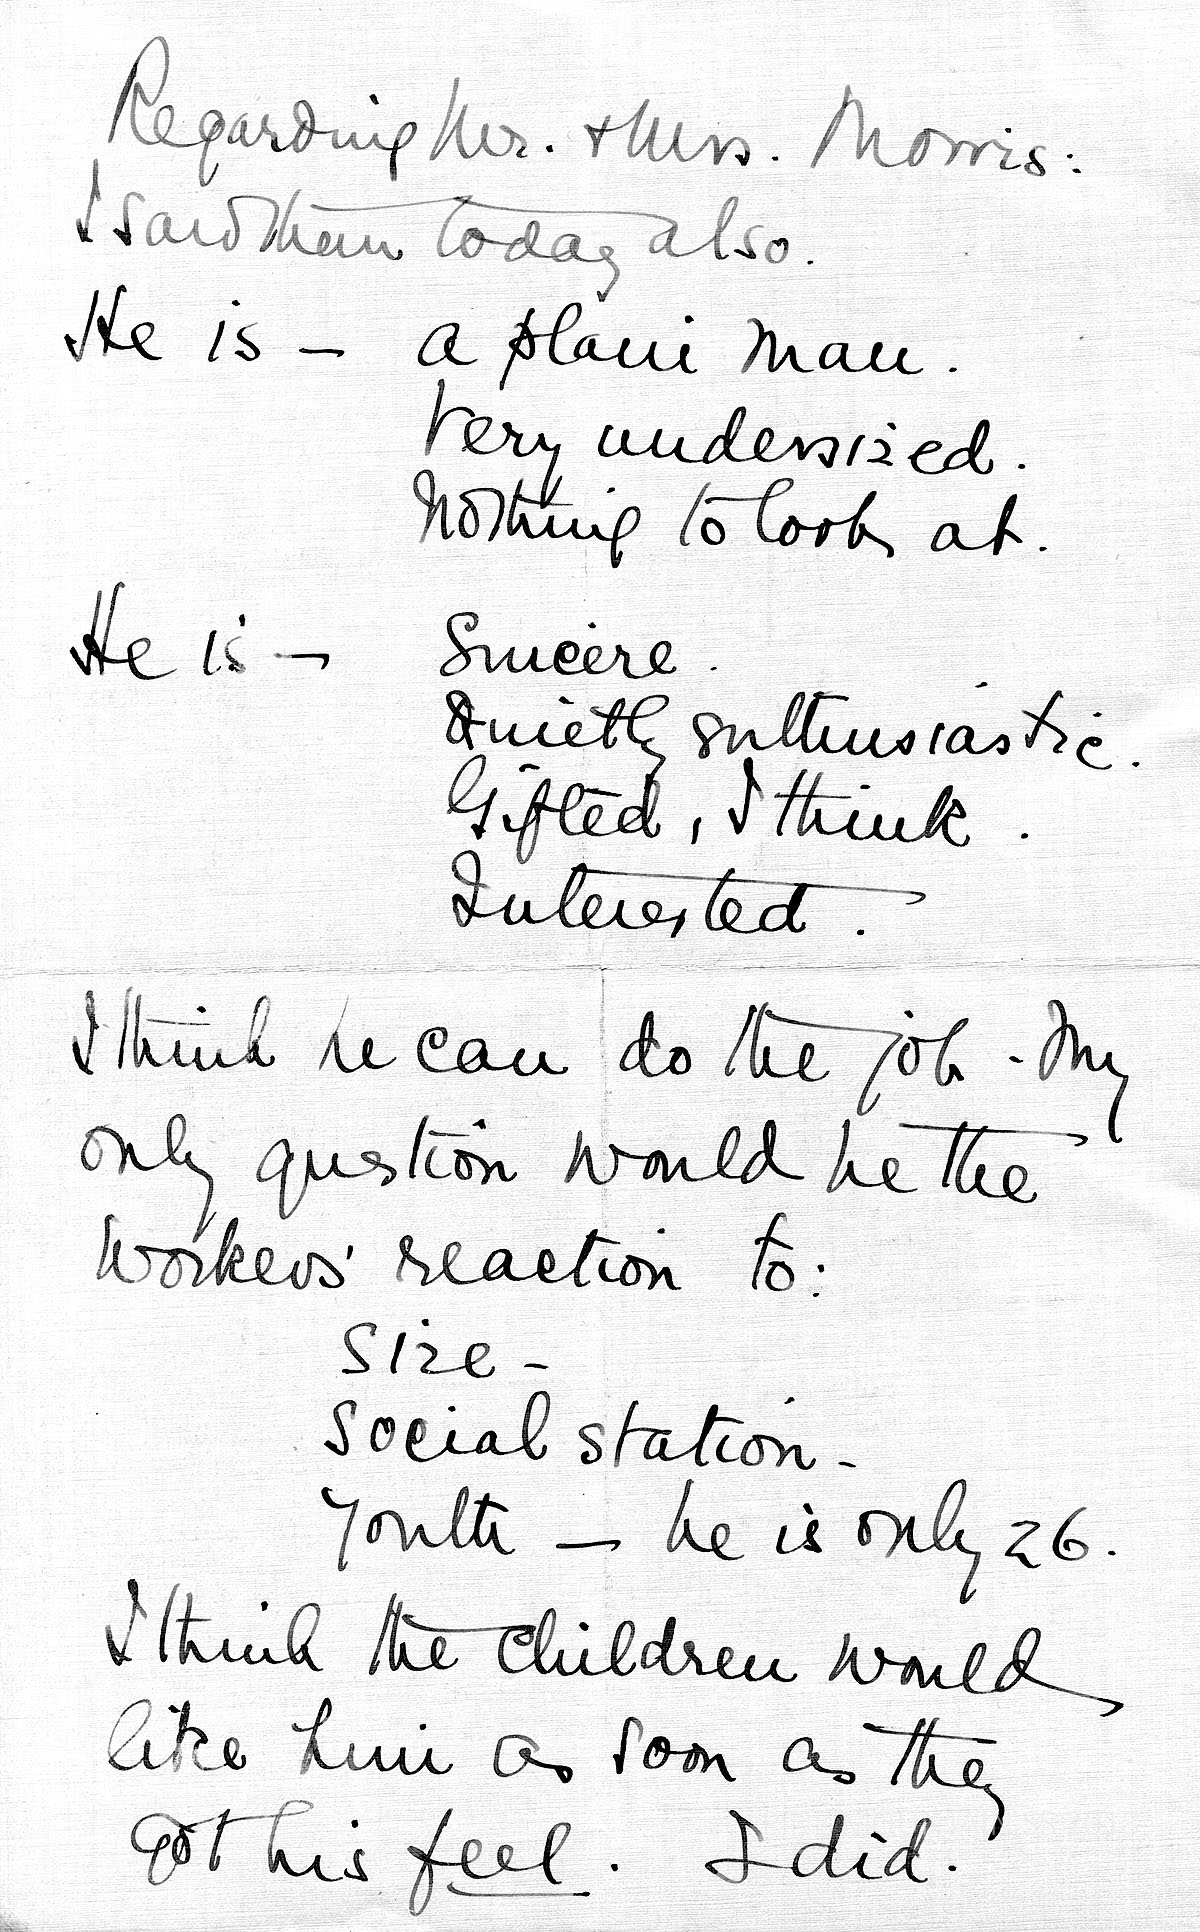 Regarding Mr. + Mrs. Morris:
I saw them today also.
He is — a plain man.
Very undersized.
Nothing to look at.
He is — Sincere.
Quietly enthusiastic.
Gifted, I think.
Interested.
I think he can do the job. My
only question would be the
workers' reaction to:
Size -
Social station -
Youth — he is only 26.
I think the children would
like him as soon as they
got his feel. I did.